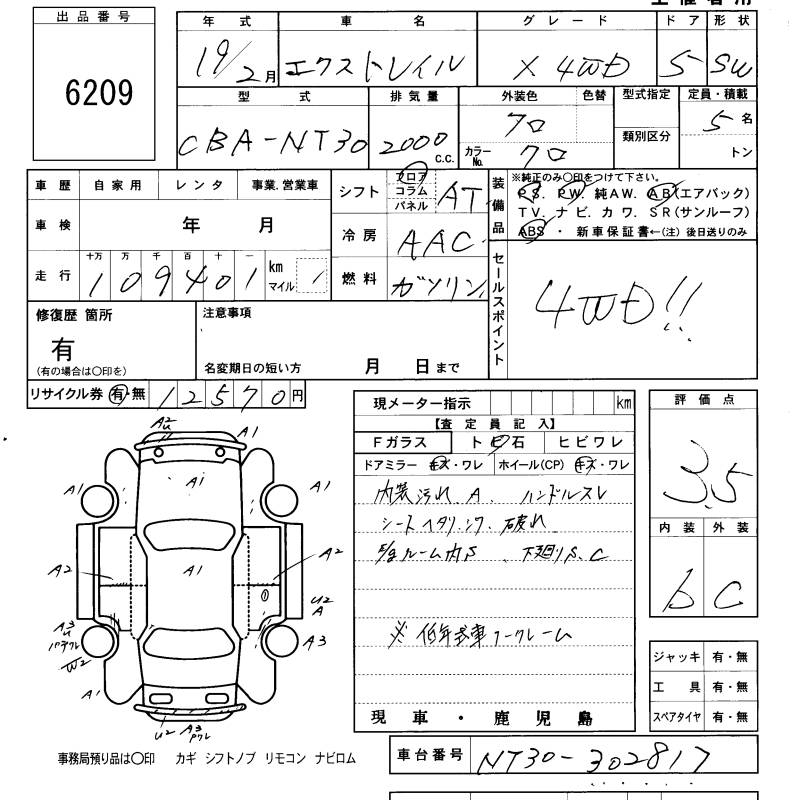 出品番号
6209
年式 車名 グレード ドア 形状
19/2月 エクストレイル X 4WD 5 SW
型式 排気量 外装色 色替 型式指定 定員・積載
CBA-NT30 2000 c.c. クロ 類別区分 5名
カラーNo. クロ トン
車歴 自家用 レンタ 事業.営業車
車検 年 月
走行 十万 万 千 百 十 一 km マイル
109401
シフト フロア コラム パネル AT
冷房 AAC
燃料 ガソリン
装備品
※純正のみ○印をつけて下さい。
P.S. P.W. 純AW. A.B(エアバック)
TV. ナビ. カワ. SR(サンルーフ)
ABS ・ 新車保証書←(注)後日送りのみ
セールスポイント
4WD!!
修復歴 箇所
有
(有の場合は○印を)
注意事項
名変期日の短い方 月 日まで
リサイクル券 有・無 12570円
現メーター指示 km
【査定員記入】
Fガラス トビ石 ヒビワレ
ドアミラー キズ・ワレ ホイール(CP) キズ・ワレ
内装汚れ A. ハンドルスレ
シートヘタリ.シワ. 破れ
ルーム内S 下廻りS.C
※低年式車ノークレーム
現車・鹿児島
評価点
3.5
内装 外装
b C
ジャッキ 有・無
工具 有・無
スペアタイヤ 有・無
A2
A1
A1
A1
A1
A2
A1
A2
U2
A
A3
A3
W2
A1
U2
A3
事務局預り品は○印 カギ シフトノブ リモコン ナビロム
車台番号 NT30-302817